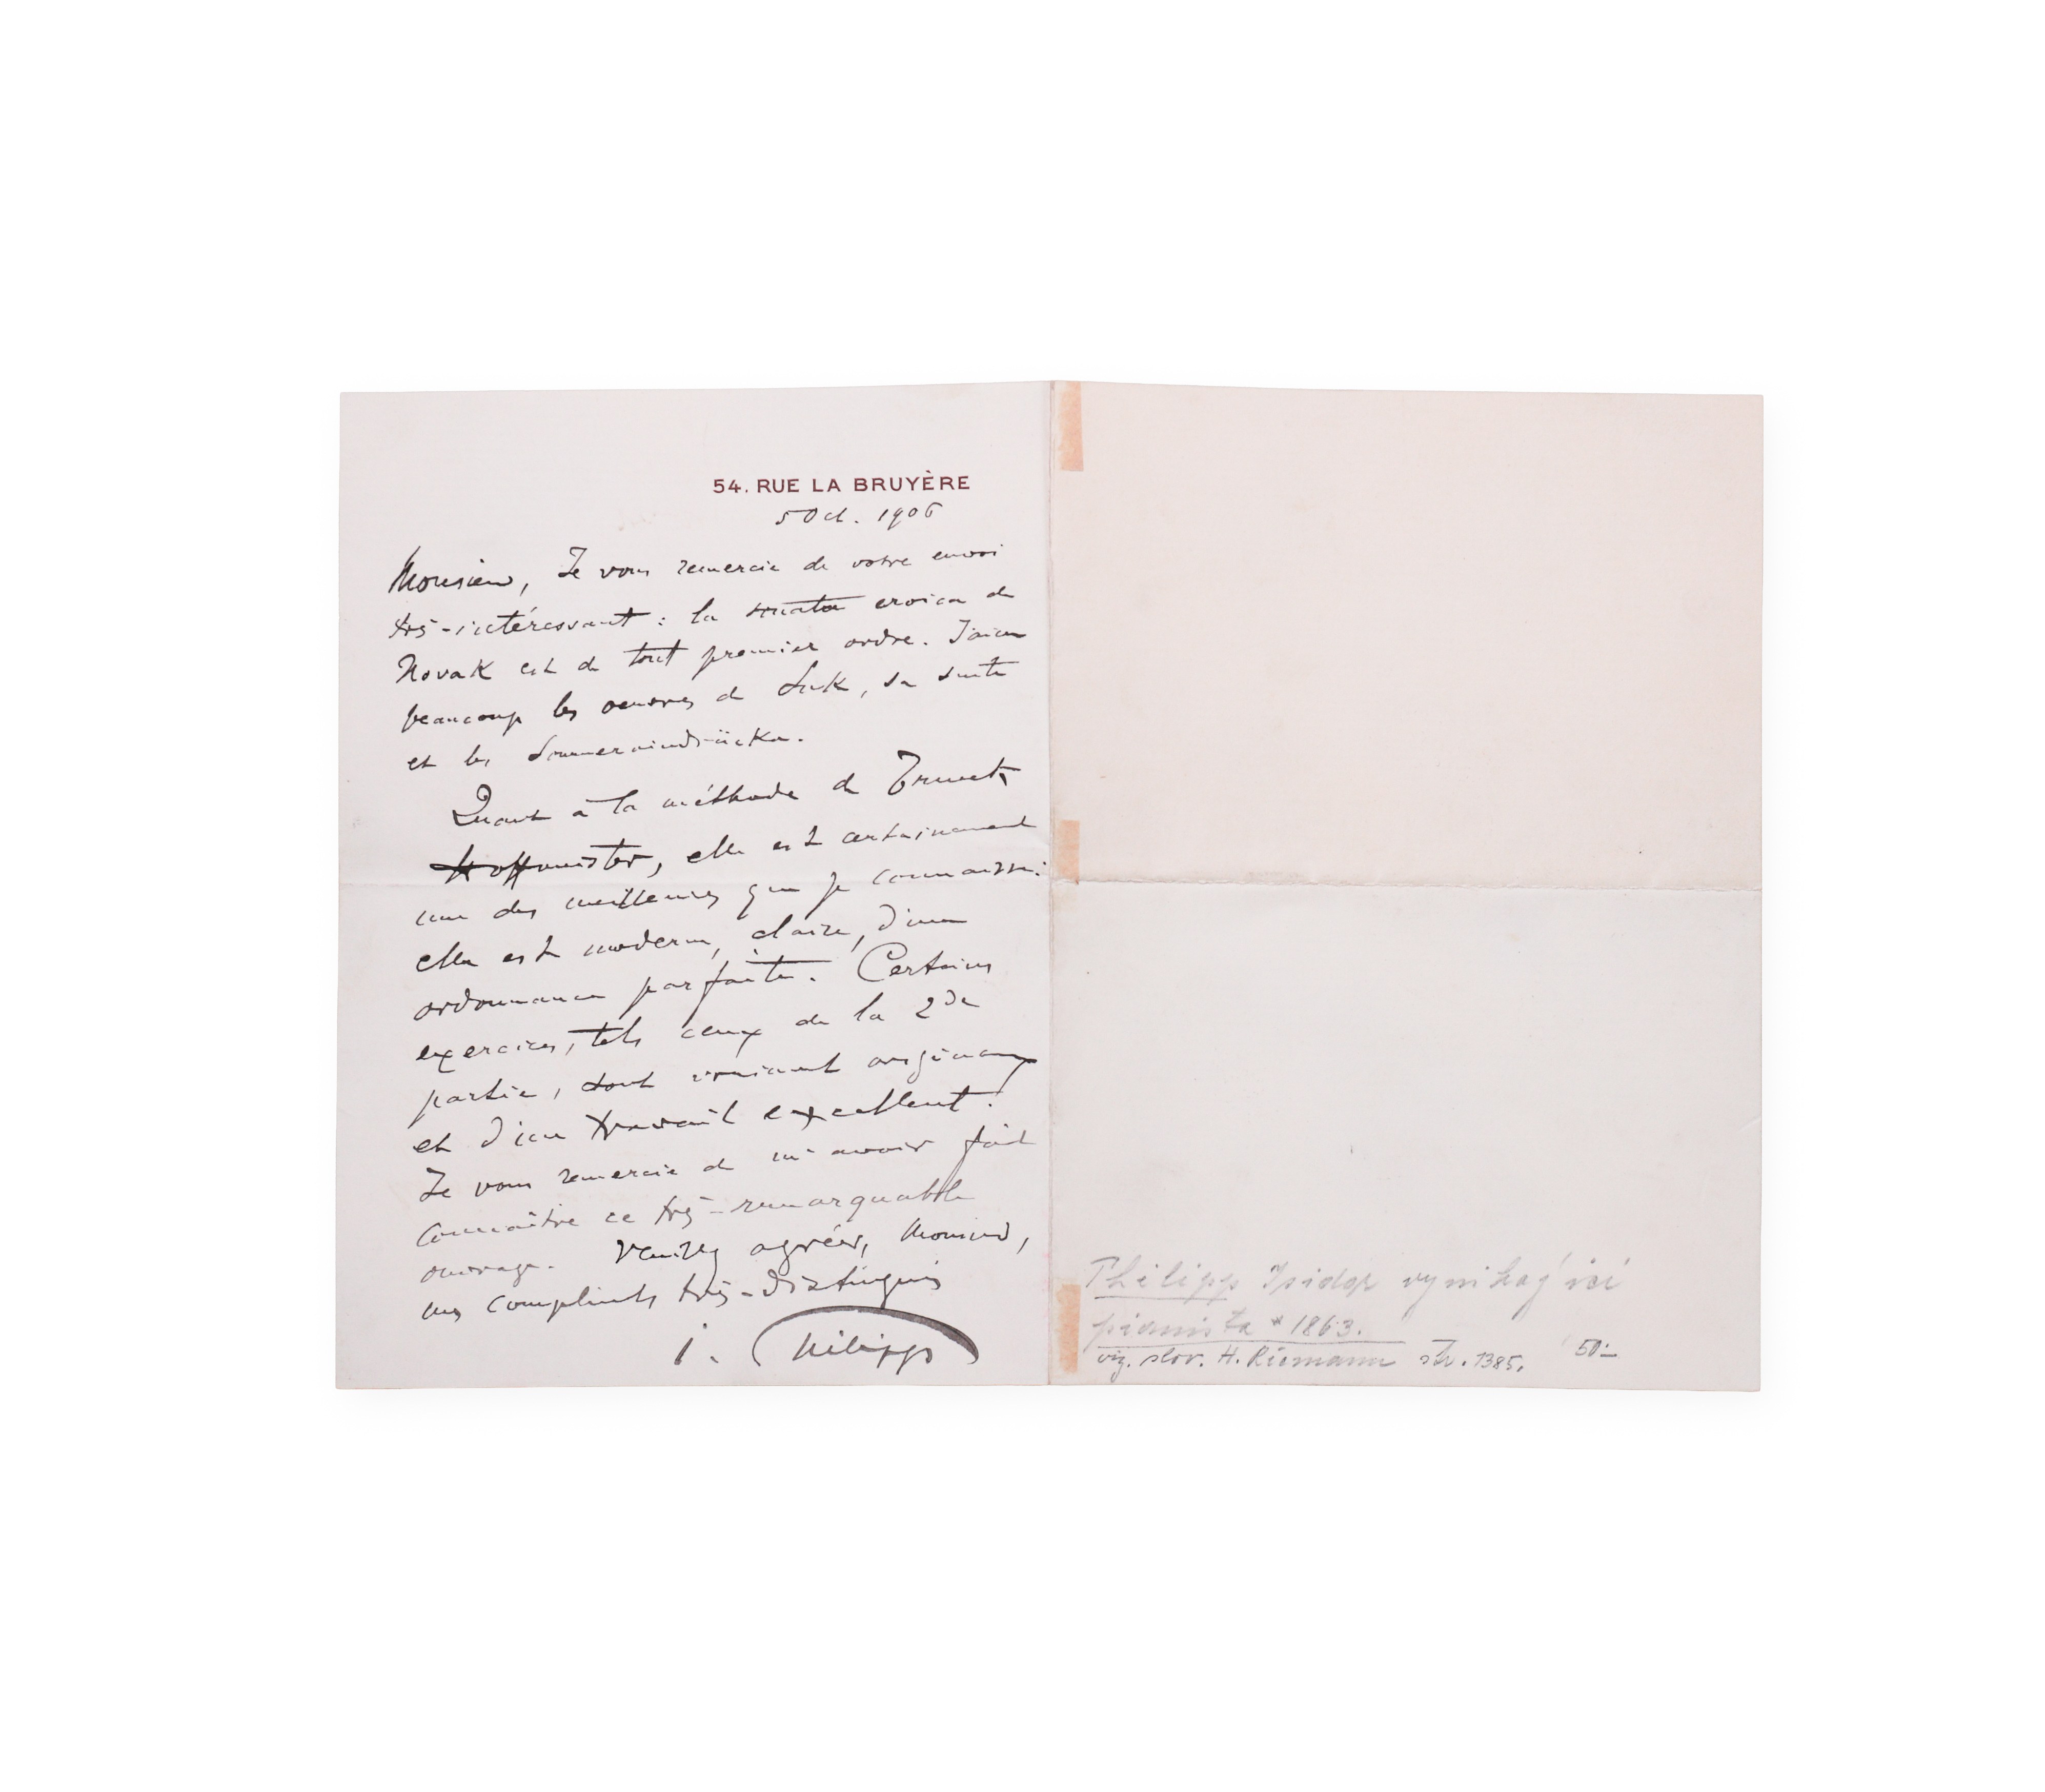 54. RUE LA BRUYÈRE
5 Oct. 1906
Monsieur, Je vous remercie de votre envoi
très-intéressant : la sonata eroica de
Novak est de tout premier ordre. J'aime
beaucoup les oeuvres de Suk, sa suite
et les Sommereindrücke.
Quant à la méthode de
Hoffmeister, elle est certainement
une des meilleures que je connaisse:
elle est moderne, claire, d'une
ordonnance parfaite. Certains
exercices, tels ceux de la 2de
partie, sont vraiment originaux
et d'un travail excellent.
Je vous remercie de m'avoir fait
connaître ce très-remarquable
ouvrage. Veuillez agréer, Monsieur,
mes compliments très-distingués
i. Philipp
Philipp Isidor vynikající
pianista * 1863.
viz. slov. H. Riemann str. 1385. 50.-